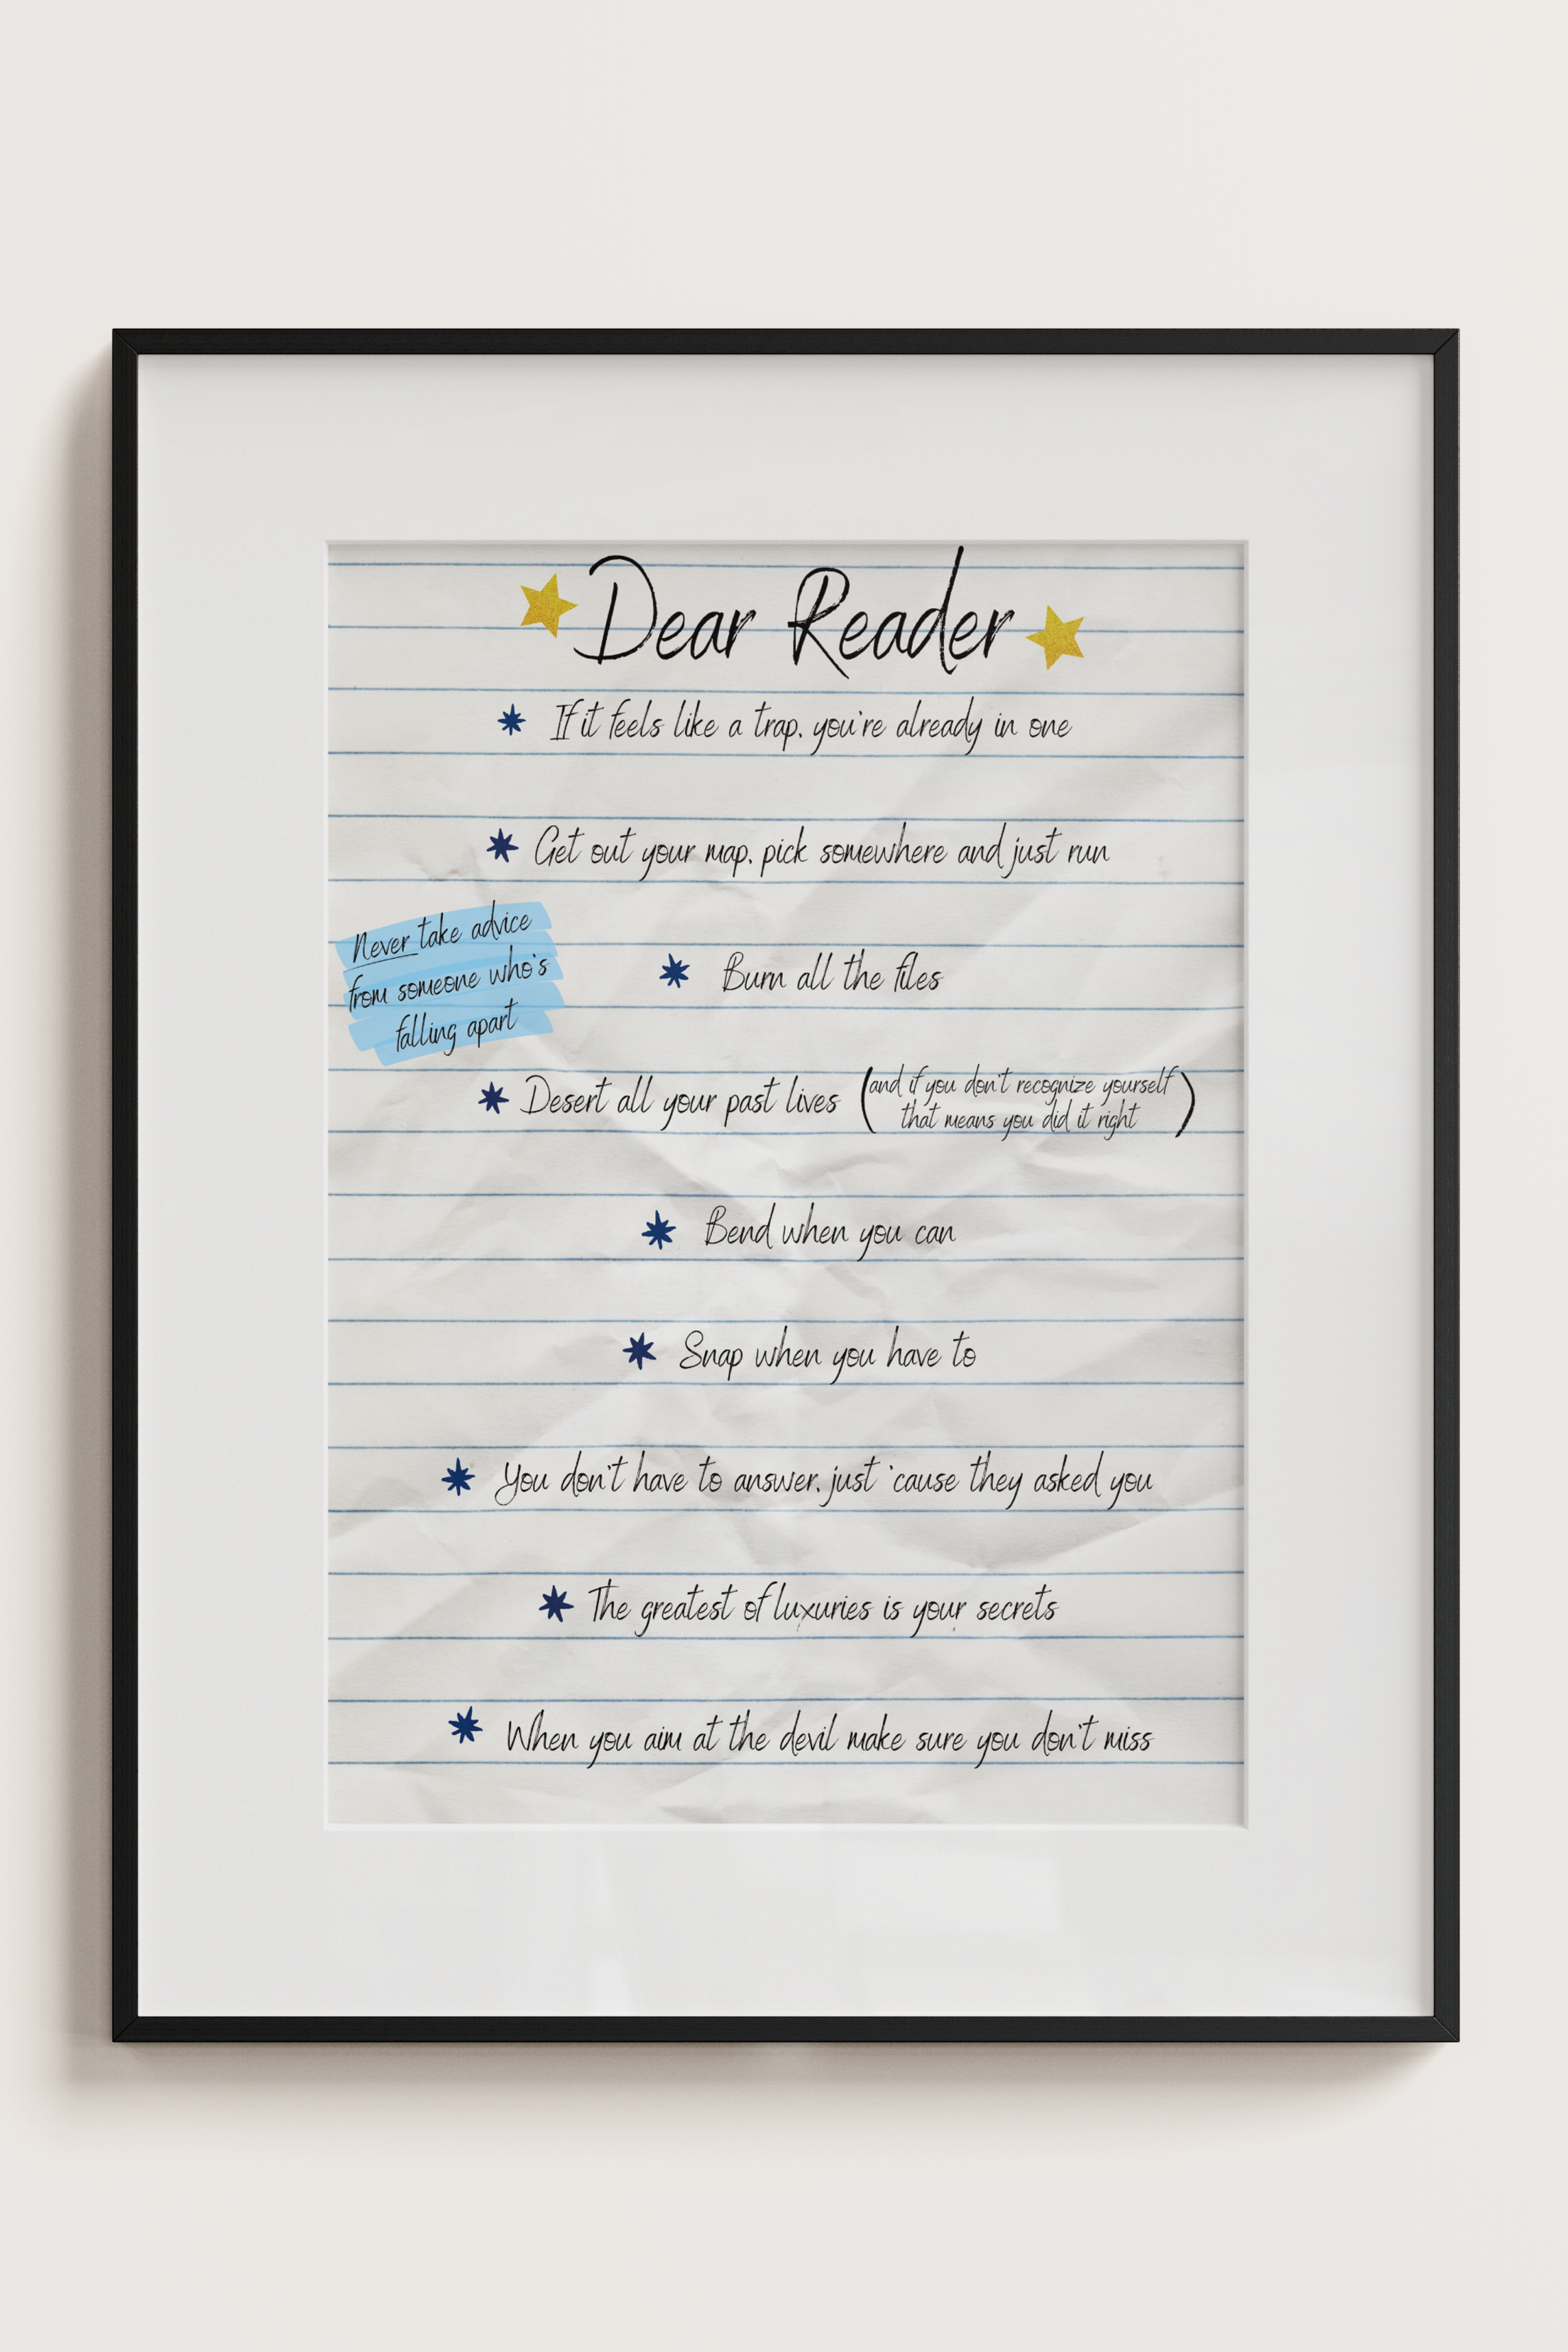 Dear Reader
If it feels like a trap, you're already in one
Get out your map, pick somewhere and just run
Never take advice
from someone who's
falling apart
Burn all the files
Desert all your past lives (and if you don't recognize yourself
that means you did it right)
Bend when you can
Snap when you have to
You don't have to answer, just 'cause they asked you
The greatest of luxuries is your secrets
When you aim at the devil make sure you don't miss